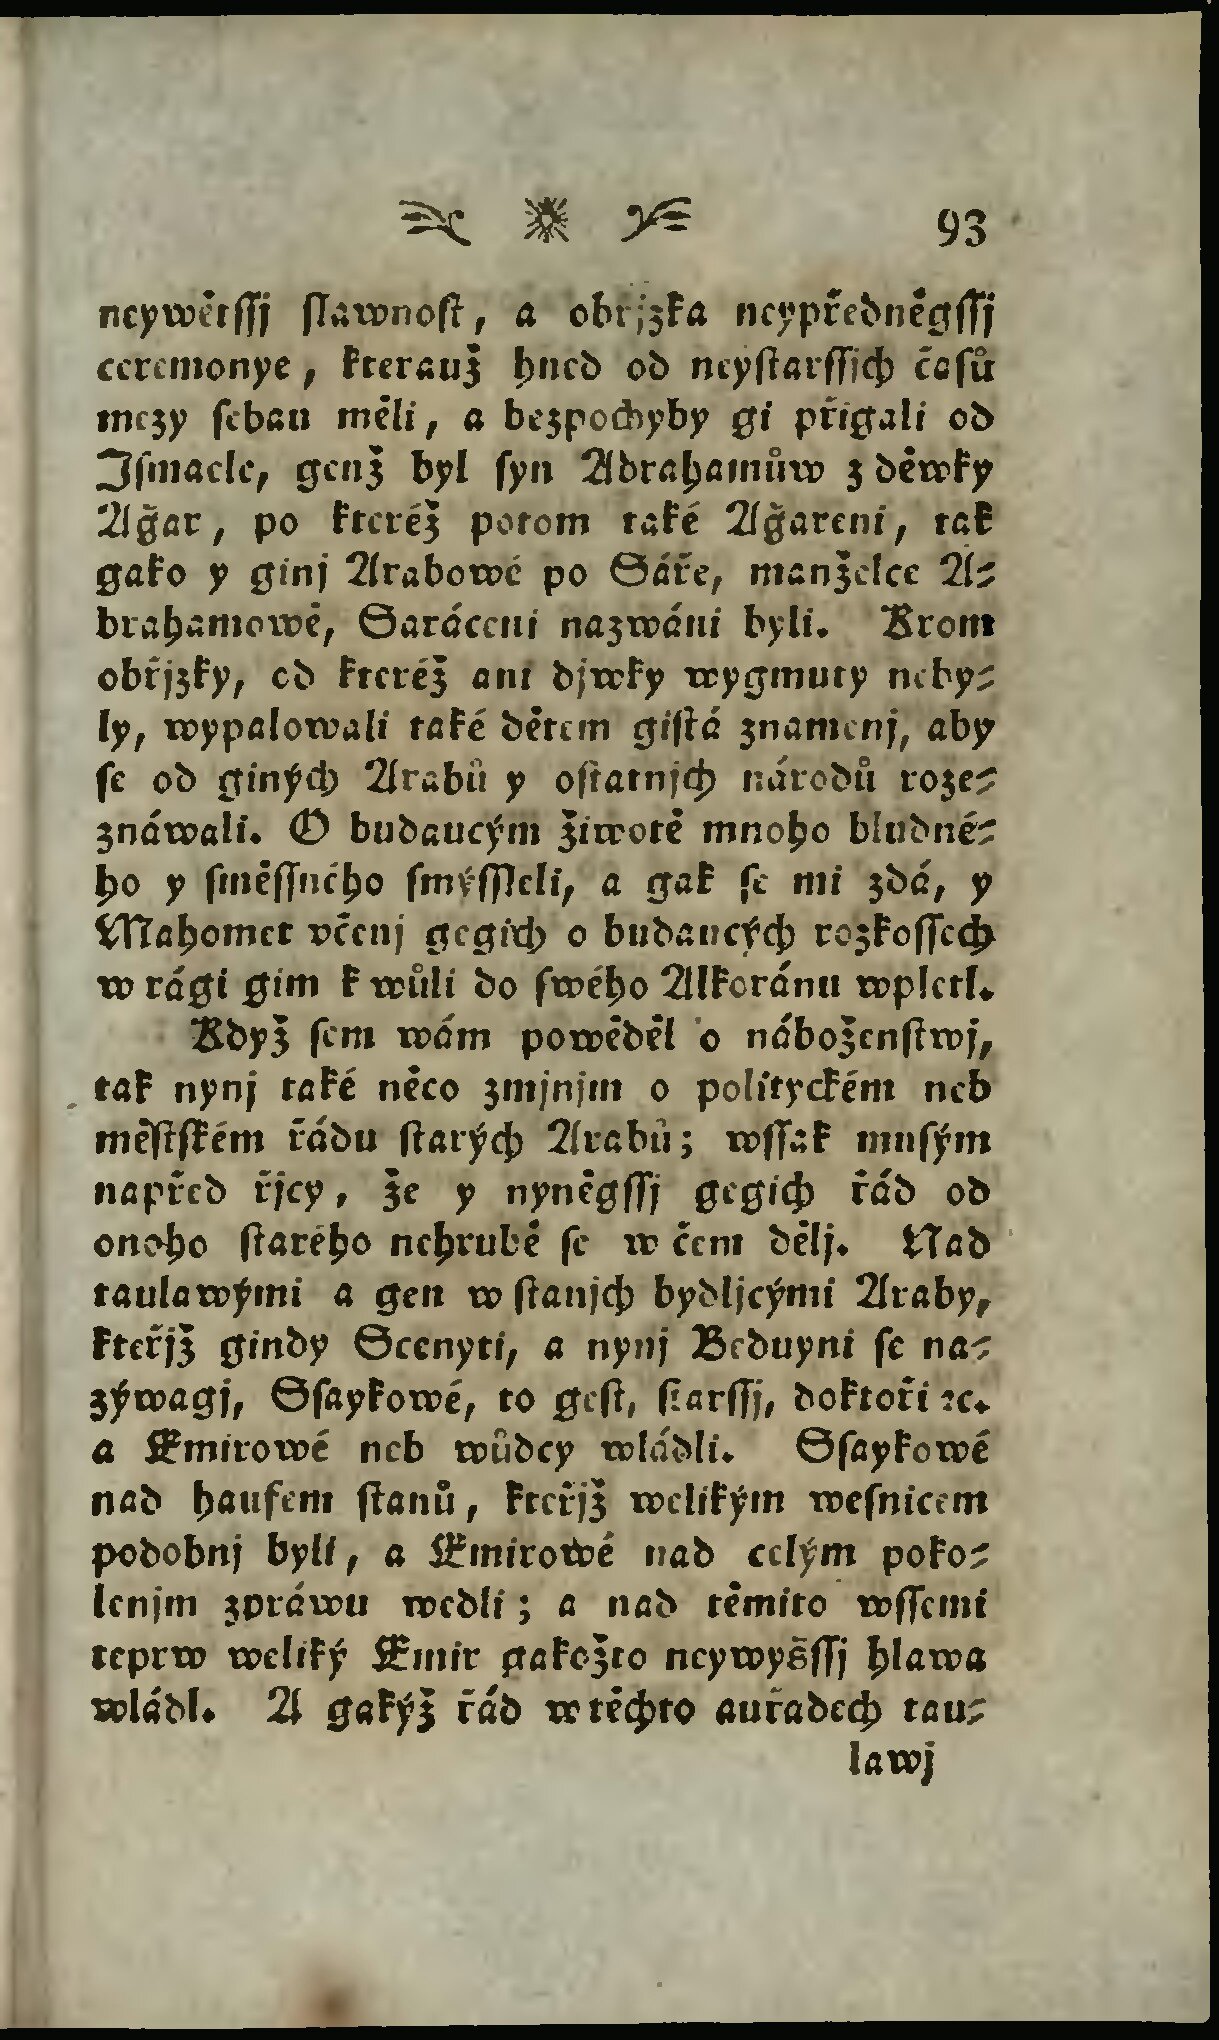 93
neywětſſj ſlawnoſt, a obrjzka neypředněgſſj
ceremonye, kterauž hned od neyſtarſſjch čaſů
mezy ſebau měli, a bezpochyby gi přigali od
Jſmaele, genž byl ſyn Abrahamůw z děwky
Aǧar, po kteréž potom také Aǧareni, tak
gako y ginj Arabowé po Sáře, manželce A-
brahamowě, Saráceni nazwáni byli. Krom
obřjzky, od kteréž ani djwky wygmuty neby-
ly, wypalowali také dětem giſtá znamenj, aby
ſe od giných Arabů y oſtatnjch národů roze-
znáwali. O budaucým žiwotě mnoho bludné-
ho y ſměſſného ſmýſſleli, a gak ſe mi zdá, y
Mahomet včenj gegich o budaucých rozkoſſech
w rági gim k wůli do ſwého Alkoránu wpletl.
Když ſem wám powěděl o náboženſtwj,
tak nynj také něco zmjnjm o polityckém neb
měſtſkém řádu ſtarých Arabů; wſſak muſým
napřed řjcy, že y nyněgſſj gegich řád od
onoho ſtarého nehrubě ſe w čem dělj. Nad
taulawými a gen w ſtanjch bydljcými Araby,
kteřjž gindy Scenyti, a nynj Beduyni ſe na-
zýwagj, Sſaykowé, to geſt, ſtarſſj, doktoři ꝛc.
a Emirowé neb wůdcy wládli. Sſaykowé
nad hauſem ſtanů, kteřjž welikým weſnicem
podobnj byli, a Emirowé nad celým poko-
lenjm zpráwu wedli; a nad těmito wſſemi
teprw weliký Emir gakožto neywyšſſj hlawa
wládl. A gakýž řád w těchto auřadech tau-
lawj